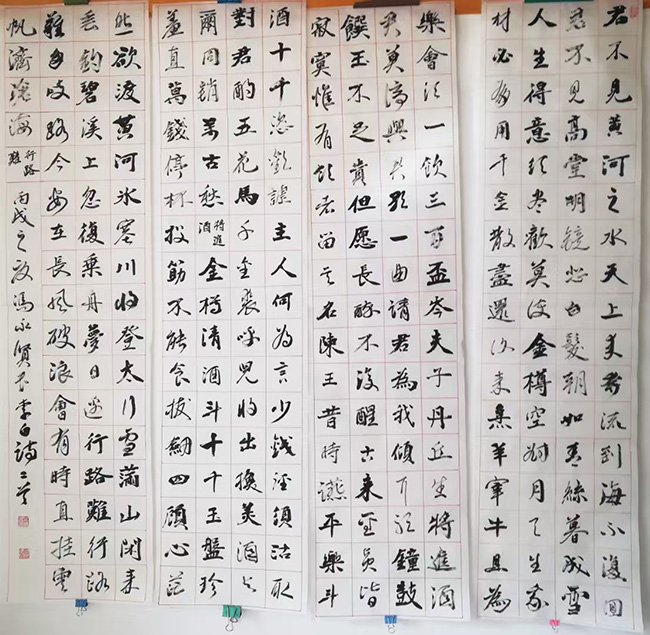 君不見黄河之水天上来奔流到海不復回
君不見高堂明鏡悲白髮朝如青絲暮成雪
人生得意須盡歡莫使金樽空對月天生我
材必有用千金散盡還復来烹羊宰牛且為
樂會須一飲三百盃岑夫子丹丘生將進酒
君莫停與君歌一曲請君為我傾耳聽鐘鼓
饌玉不足貴但愿長醉不復醒古来聖賢皆
寂寞惟有飲者留其名陳王昔時讌平樂斗
酒十千恣歡謔主人何為言少錢徑須沽取
對君酌五花馬千金裘呼兒將出換美酒與
爾同銷萬古愁將進酒金樽清酒斗十千玉盤珍
羞直萬錢停杯投筯不能食拔劍四顧心茫
茫欲渡黄河冰塞川將登太行雪滿山閑来
垂釣碧溪上忽復乘舟夢日邊行路難行路
難多岐路今安在長風破浪會有時直挂雲
帆濟滄海行路難丙戌之歲馮永賢書李白詩二首